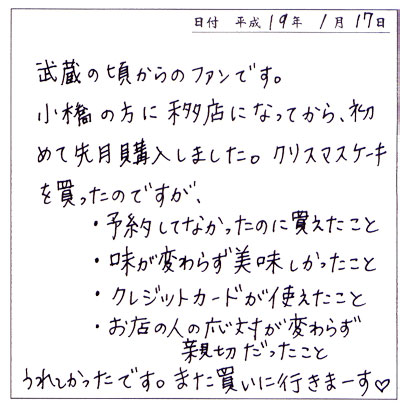 日付 平成 19年 1月 17日
武蔵の頃からのファンです。
小橋の方に移店になってから、初
めて先月購入しました。クリスマスケーキ
を買ったのですが、
・予約してなかったのに買えたこと
・味が変わらず美味しかったこと
・クレジットカードが使えたこと
・お店の人の応対が変わらず
親切だったこと
うれしかったです。また買いに行きまーす♡